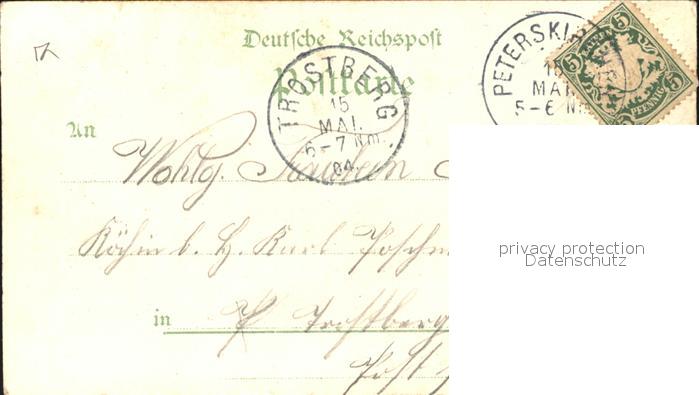 Deutsche Reichspost
Postkarte
TROSTBERG
15
MAI.
6-7 Nm.
04.
PETERSKIR
15
MAI.
5-6 Nm
5
5
5
BAYERN
PFENNIG
An
Wohlg. Fräulein
Köchin b. H. Karl
in Trostberg
Post
privacy protection
Datenschutz